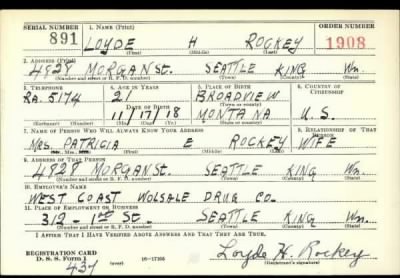 SERIAL NUMBER 1. NAME (Print) ORDER NUMBER
891 LOYDE H ROCKEY 1908
(First) (Middle) (Last)
2. ADDRESS (Print)
4828 MORGAN St. SEATTLE KING Wn.
(Number and street or R. F. D. number) (Town) (County) (State)
3. TELEPHONE 4. AGE IN YEARS 5. PLACE OF BIRTH 6. COUNTRY OF CITIZENSHIP
RA. 5174 21 BROADVIEW
DATE OF BIRTH (Town or county)
11/17/18 MONTANA U.S.
(Exchange) (Number) (Mo.) (Day) (Yr.) (State or country)
7. NAME OF PERSON WHO WILL ALWAYS KNOW YOUR ADDRESS 8. RELATIONSHIP OF THAT PERSON
MRS. PATRICIA E ROCKEY WIFE
(First) (Middle) (Last)
9. ADDRESS OF THAT PERSON
4828 MORGAN St. SEATTLE KING Wn.
(Number and street or R. F. D. number) (Town) (County) (State)
10. EMPLOYER'S NAME
WEST COAST WOLSALE DRUG CO.
11. PLACE OF EMPLOYMENT OR BUSINESS
312-1st St. SEATTLE KING Wn.
(Number and street or R. F. D. number) (Town) (County) (State)
I AFFIRM THAT I HAVE VERIFIED ABOVE ANSWERS AND THAT THEY ARE TRUE.
REGISTRATION CARD
D. S. S. Form 1 (over) 16-17105 Loyde H. Rockey
437 (Registrant's signature)